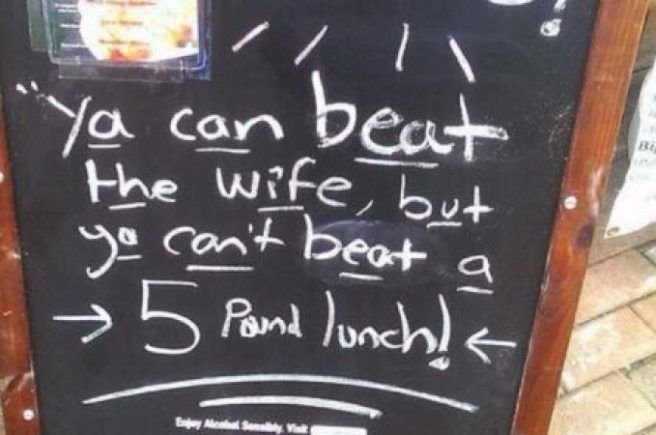 "Ya can beat
the wife, but
ya can't beat a
→ 5 Pound lunch! ←
Enjoy Alcohol Sensibly. Visit